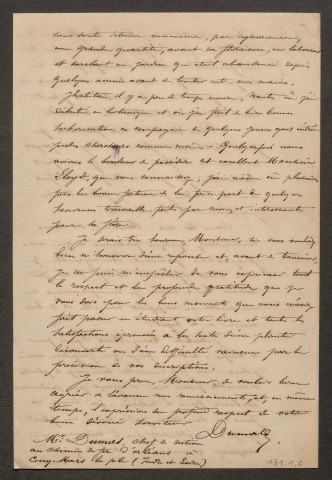 sans doute détruit moi-même, par ignorance,
une grande quantité, avant sa floraison, en labourant
et sarclant un jardin qui était abandonné depuis
quelques années avant de tomber entre mes mains.
J'habitais, il y a peu de temps encore, Nantes où j'ai
débuté en botanique et où j'ai fait de bien bonnes
herborisations en compagnie de quelques jeunes gens intré-
pides chercheurs comme moi. Quelquefois nous
avions le bonheur de posséder cet excellent Monsieur
Lloyd, que vous connaissez, j'ai même eu plusieurs
fois la bonne fortune de lui faire part de quelques
heureuses trouvailles faites par nous, et intéressantes
pour sa flore.
Je serais très heureux, Monsieur, si vous vouliez
bien m'honorer d'une réponse et, avant de terminer,
je ne puis m'empêcher de vous exprimer tout
le respect et la profonde gratitude que je
vous dois pour les bons moments que vous m'avez
fait passer en étudiant votre livre et toutes les
satisfactions éprouvées à la suite d'une plante
découverte ou d'une difficulté vaincue par la
précision de vos descriptions.
Je vous prie, Monsieur, de vouloir bien
agréer à l'avance mes remerciements, et, en même
temps, l'expression du profond respect de votre
bien dévoué serviteur
Dumas
Mr. Dumas, chef de station
au chemin de fer d'orléans à
Cinq-Mars la pile (Indre et Loire)